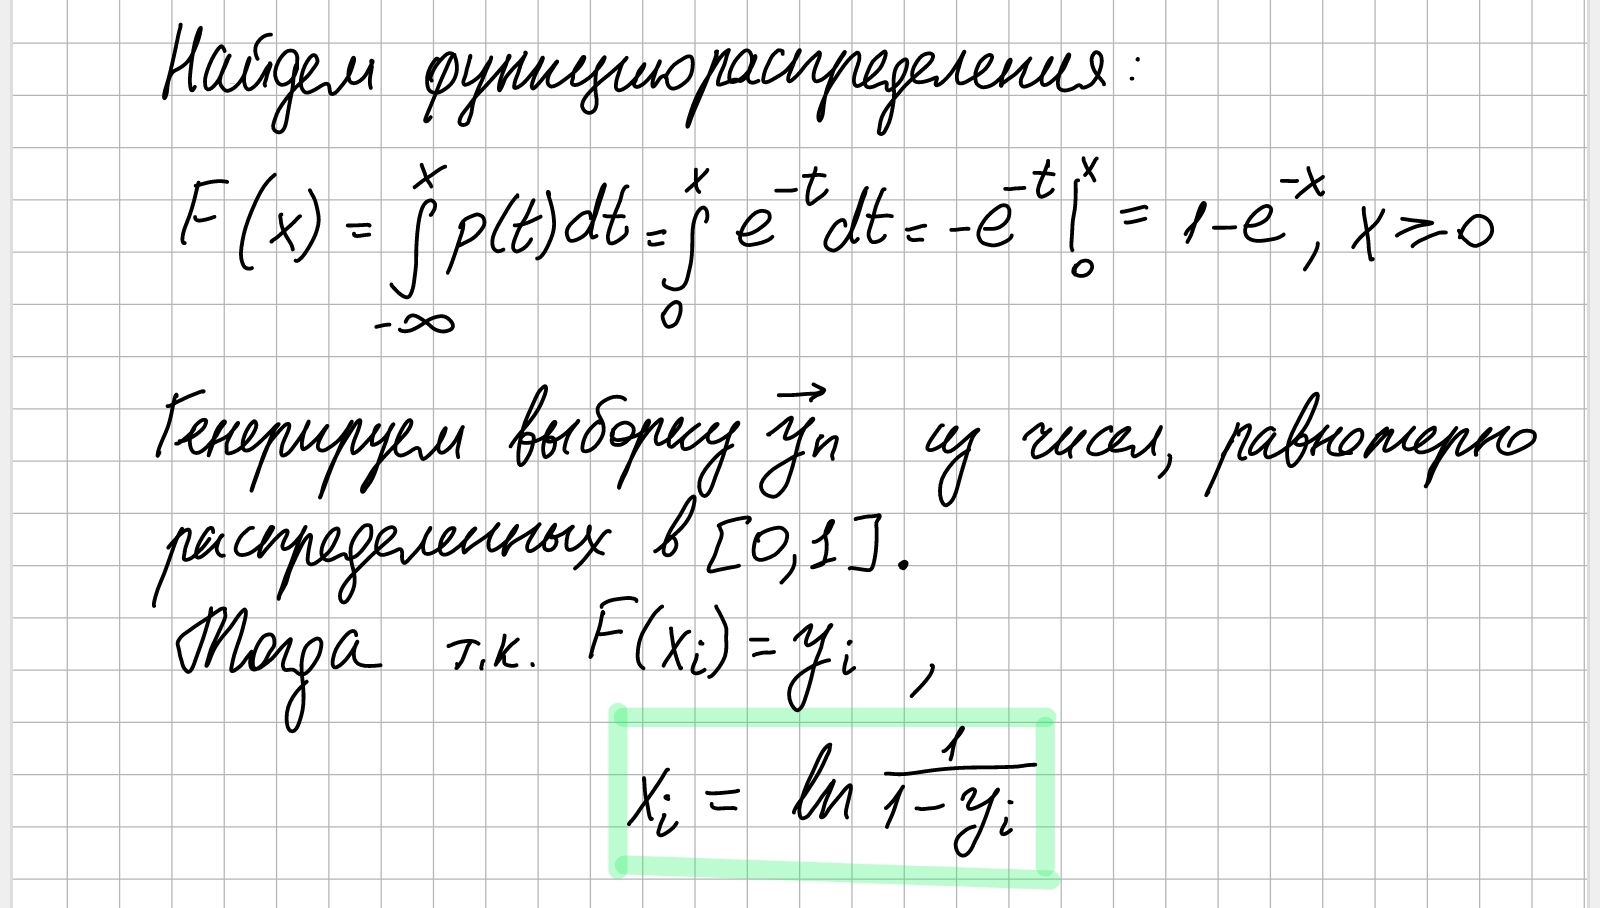 Найдем функцию распределения:
F(x) = ∫_{-∞}^{x} p(t)dt = ∫_{0}^{x} e^{-t}dt = -e^{-t}|_{0}^{x} = 1-e^{-x}, x ⩾ 0
Генерируем выборку \vec{y}_n из чисел, равномерно
распределенных в [0,1].
Тогда т.к. F(x_i) = y_i ,
x_i = ln \frac{1}{1-y_i}